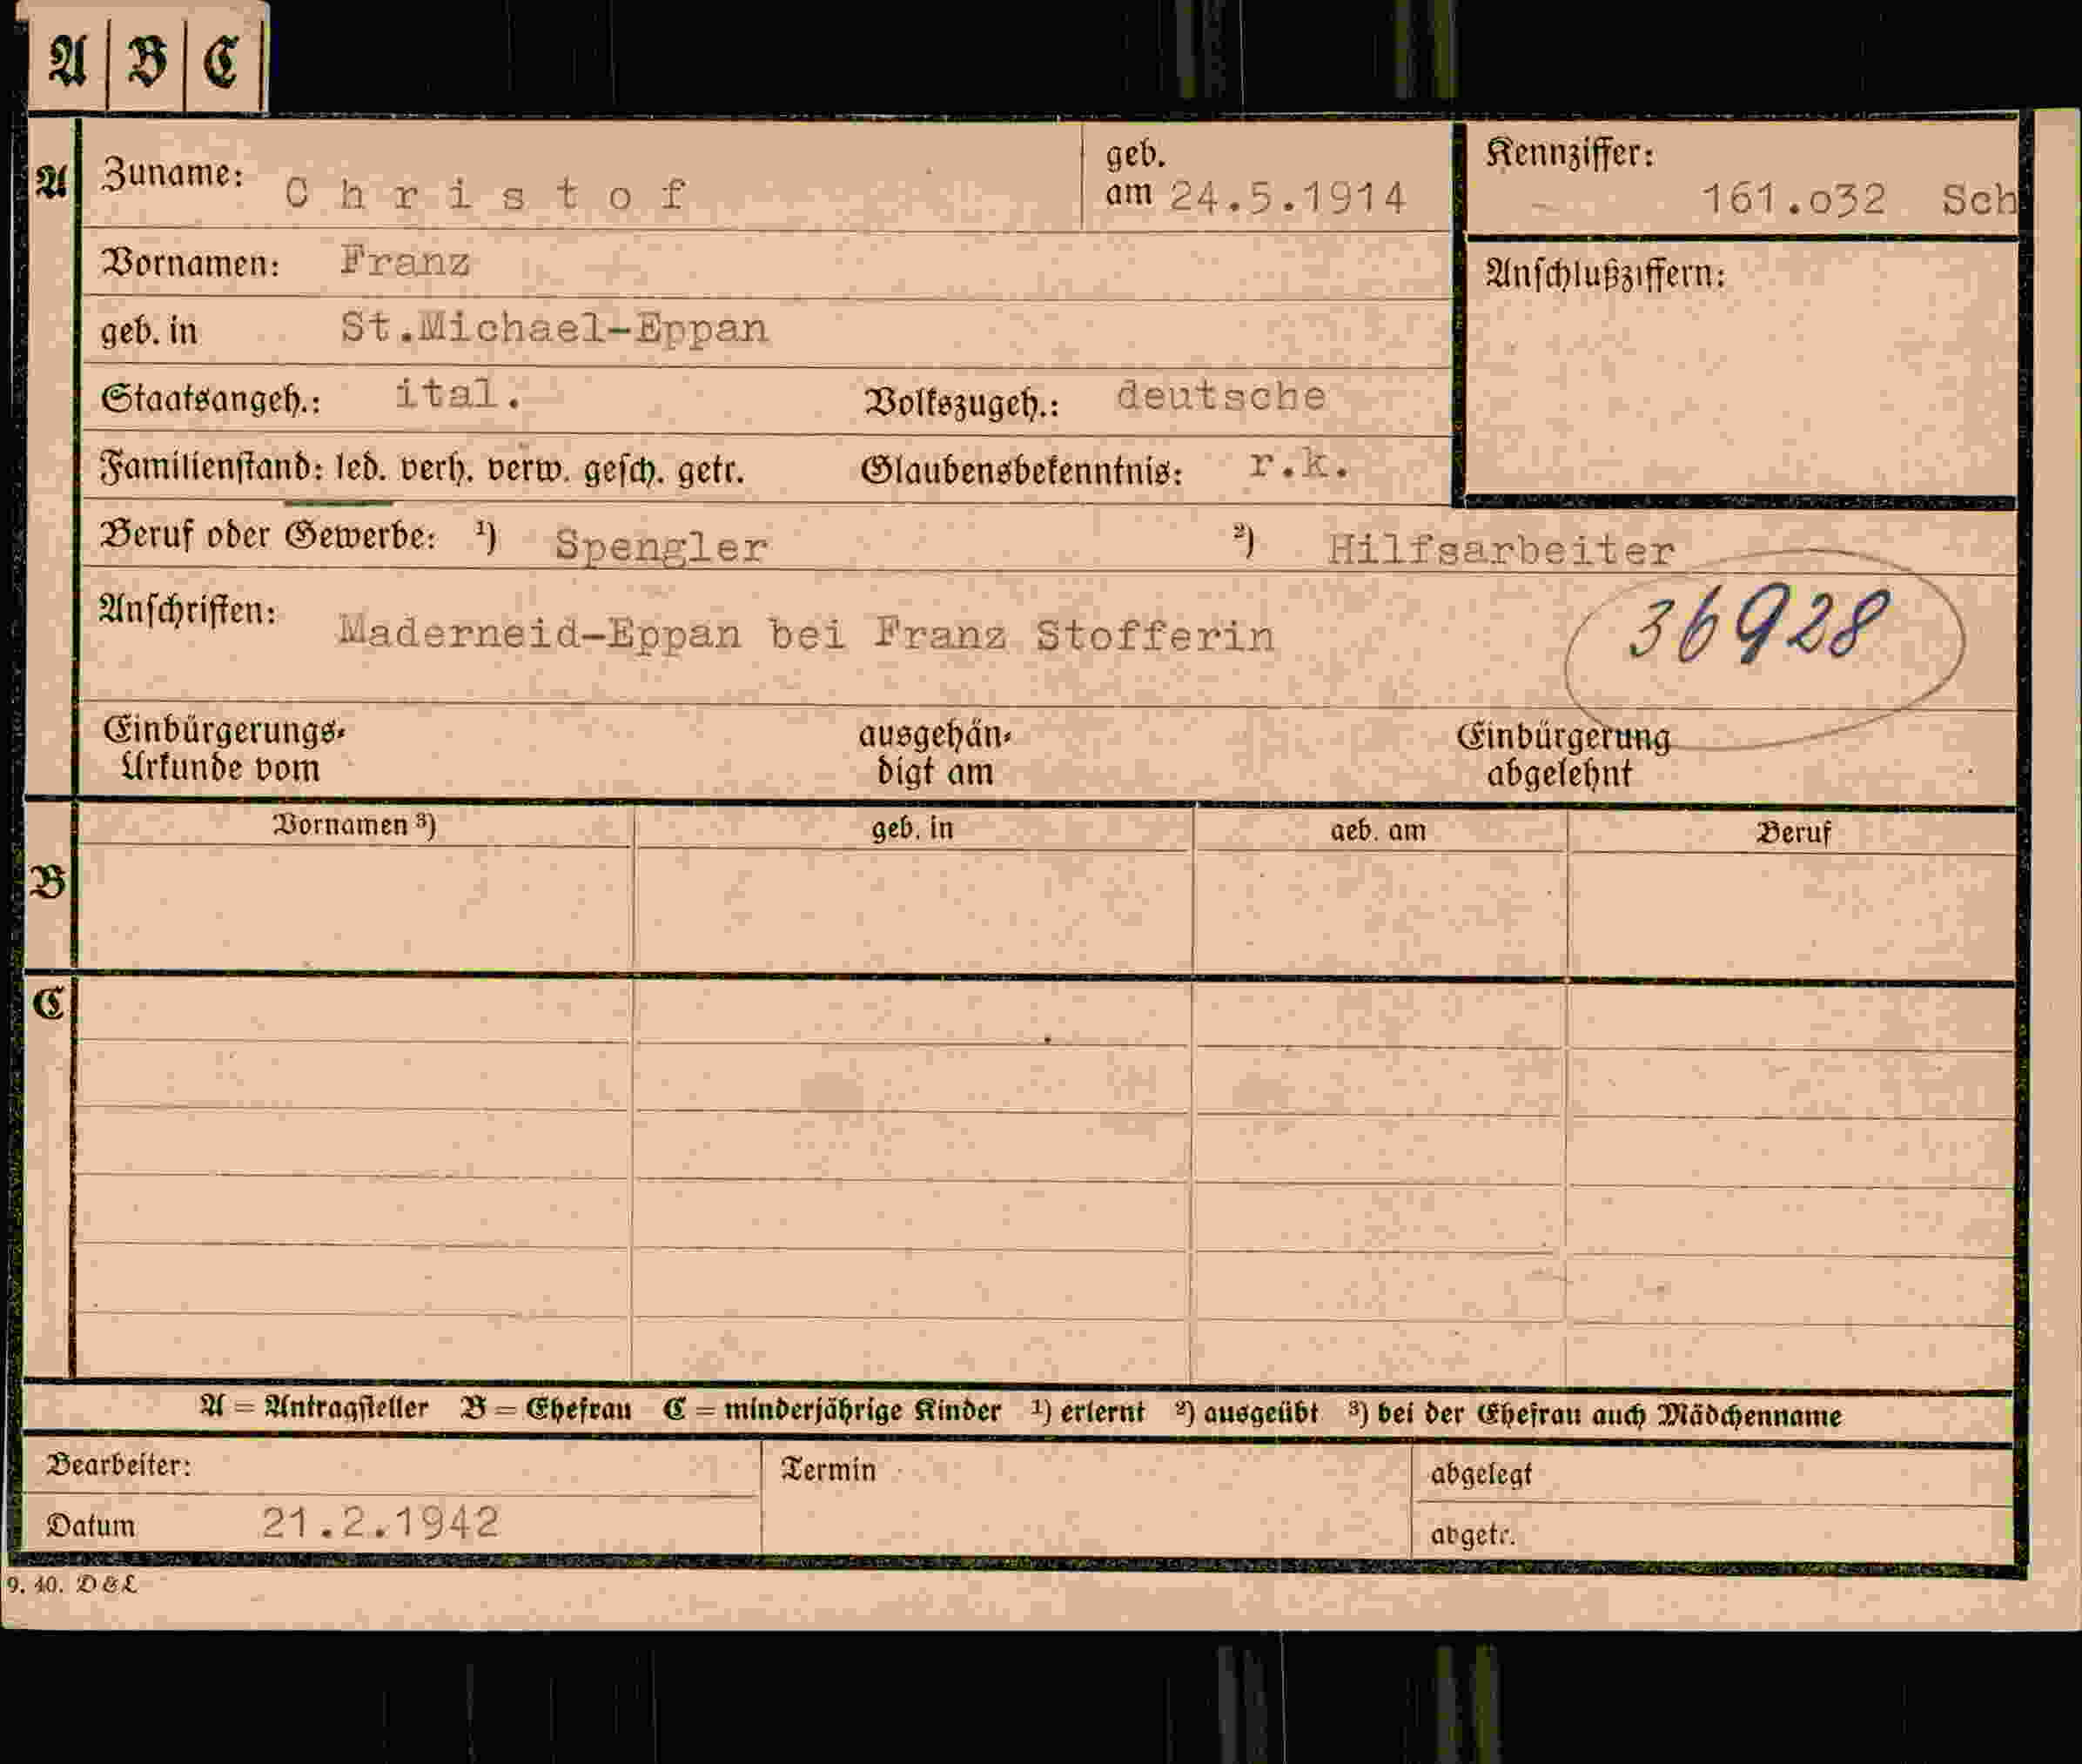 A B C
A Zuname: Christof geb. am 24.5.1914 Kennziffer: 161.o32 Sch
Vornamen: Franz Anschlußziffern:
geb. in St.Michael-Eppan
Staatsangeh.: ital. Volkszugeh.: deutsche
Familienstand: led. verh. verw. gesch. getr. Glaubensbekenntnis: r.k.
Beruf oder Gewerbe: ¹) Spengler ²) Hilfsarbeiter
Anschriften: Maderneid-Eppan bei Franz Stofferin 36928
Einbürgerungs- ausgehän- Einbürgerung
Urkunde vom digt am abgelehnt
Vornamen ³) geb. in geb. am Beruf
B
C
A = Antragsteller B = Ehefrau C = minderjährige Kinder ¹) erlernt ²) ausgeübt ³) bei der Ehefrau auch Mädchenname
Bearbeiter: Termin abgelegt
Datum 21.2.1942 abgetr.
9. 40. D & L